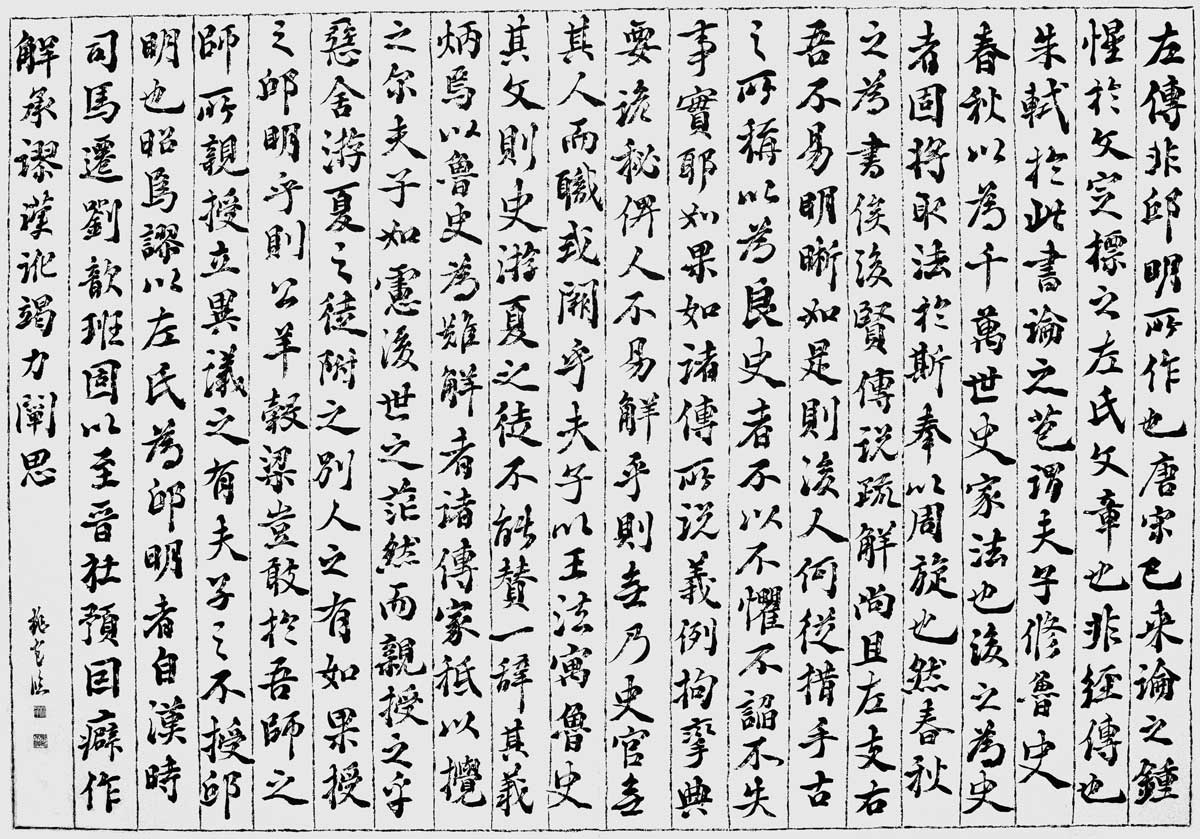 左傳非邱明所作也唐宋已来論之鍾
惺於文定標之左氏文章也非經傳也
朱軾於此書論之芑謂夫子修魯史
春秋以為千萬世史家法也後之為史
者固将取法於斯奉以周旋也然春秋
之為書俟後賢傳説疏解尚且左支右
吾不易明晰如是則後人何從措手古
之所稱以為良史者不以不懼不諂不失
事實耶如果如諸傳所説義例拘攣典
要詭秘俾人不易解乎則無乃史官無
其人而職或闕乎夫子以王法寓魯史
其文則史游夏之徒不能賛一辭其義
炳焉以魯史為難解者諸傳家秖以攪
之尔夫子如慮後世之茫然而親授之乎
惡舍游夏之徒附之别人之有如果授
之邱明乎則公羊穀梁豈敢於吾師之
師所親授立異議之有夫子之不授邱
明也昭焉謬以左氏為邱明者自漢時
司馬遷劉歆班固以至晋杜預因癖作
解承謬襲訛竭力闡思